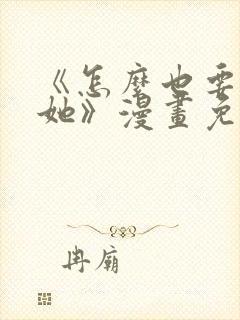 《怎麼也要
她》漫畫免
冉廟